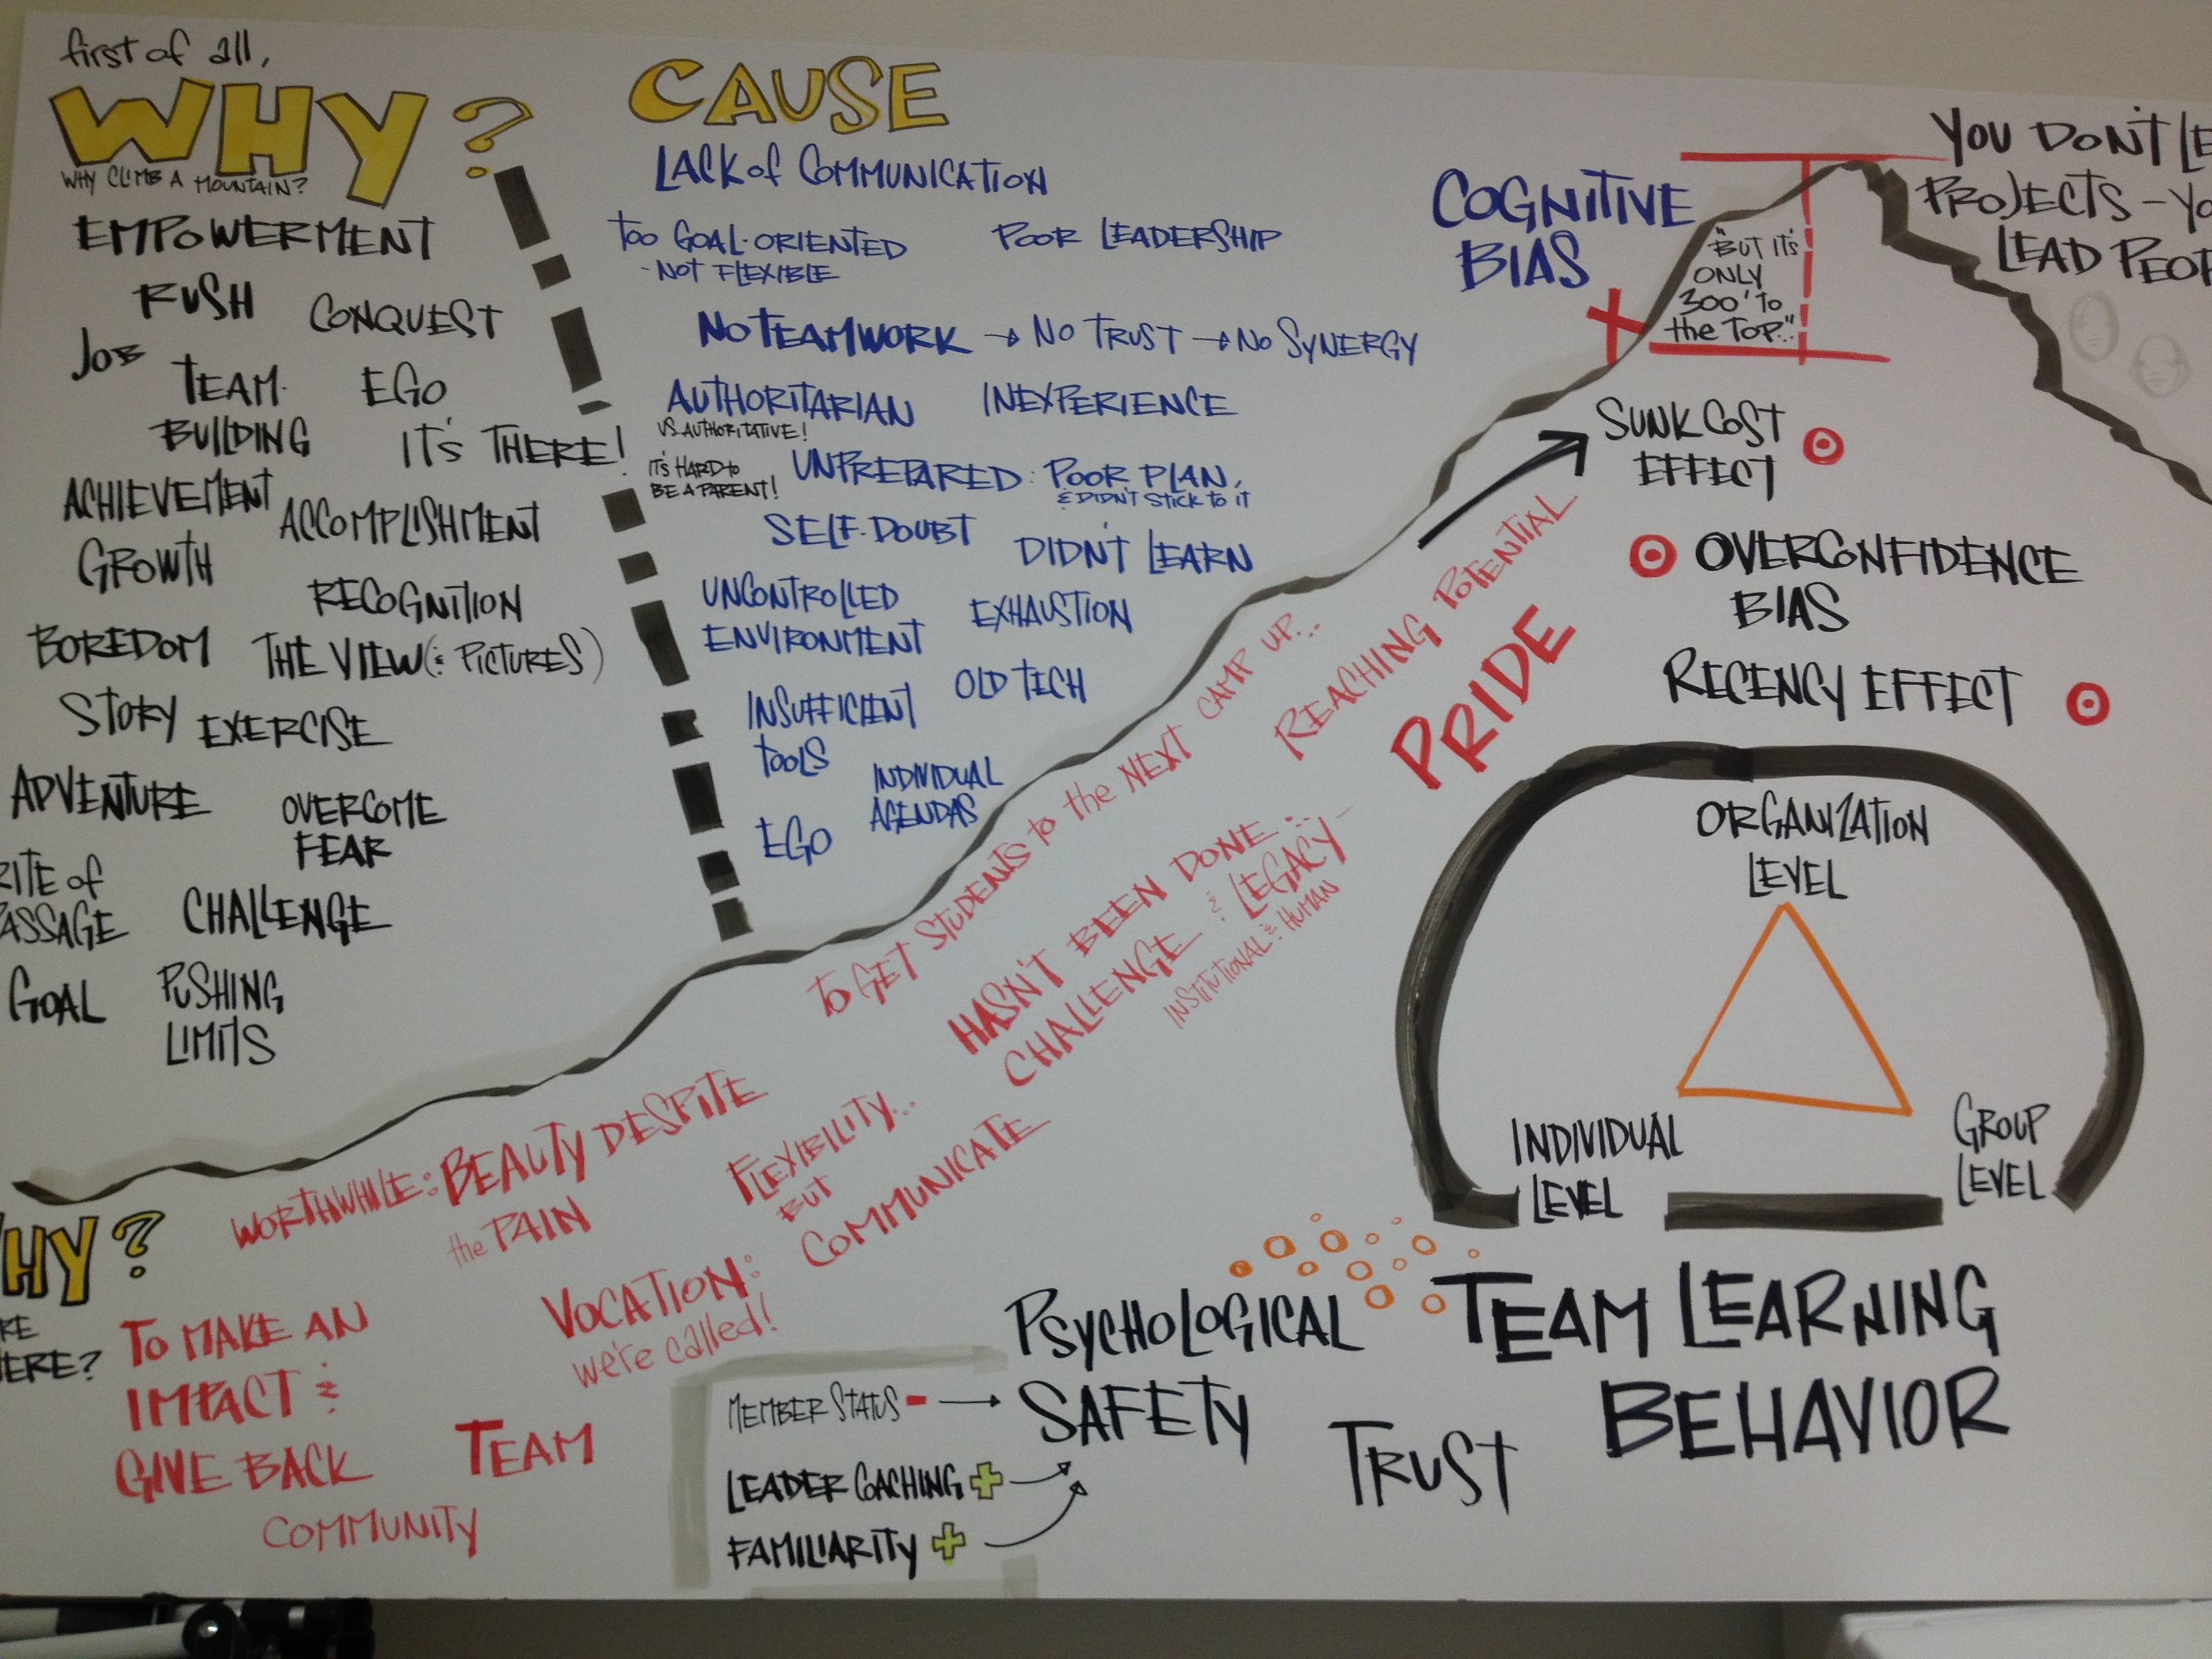 first of all,
WHY?
WHY CLIMB A MOUNTAIN?
EMPOWERMENT
RUSH
CONQUEST
JOB
TEAM-
BUILDING
EGO
IT'S THERE!
ACHIEVEMENT
ACCOMPLISHMENT
GROWTH
RECOGNITION
BOREDOM
THE VIEW (& PICTURES)
STORY
EXERCISE
ADVENTURE
OVERCOME
FEAR
RITE of
PASSAGE
CHALLENGE
GOAL
PUSHING
LIMITS
CAUSE
LACK of COMMUNICATION
TOO GOAL-ORIENTED
- NOT FLEXIBLE
POOR LEADERSHIP
NO TEAMWORK → NO TRUST → NO SYNERGY
AUTHORITARIAN
VS. AUTHORITATIVE!
INEXPERIENCE
IT'S HARD to
BE A PARENT!
UNPREPARED: POOR PLAN,
& DIDN'T STICK to IT
SELF-DOUBT
DIDN'T LEARN
UNCONTROLLED
ENVIRONMENT
EXHAUSTION
INSUFFICIENT
TOOLS
OLD TECH
INDIVIDUAL
AGENDAS
EGO
COGNITIVE
BIAS
"BUT IT'S
ONLY
300' to
the TOP..."
YOU DON'T LE
PROJECTS - YO
LEAD PEOP
SUNK COST
EFFECT
OVERCONFIDENCE
BIAS
RECENCY EFFECT
ORGANIZATION
LEVEL
INDIVIDUAL
LEVEL
GROUP
LEVEL
HY?
RE
ERE?
TO MAKE AN
IMPACT &
GIVE BACK
COMMUNITY
TEAM
WORTHWHILE: BEAUTY DESPITE
the PAIN
VOCATION:
we're called!
FLEXIBILITY...
BUT
COMMUNICATE
TO GET STUDENTS to the NEXT CAMP UP...
HASN'T BEEN DONE...
CHALLENGE & LEGACY -
INSTITUTIONAL & HUMAN
REACHING POTENTIAL
PRIDE
MEMBER STATUS - →
LEADER COACHING +
FAMILIARITY +
PSYCHOLOGICAL
SAFETY
TRUST
TEAM LEARNING
BEHAVIOR